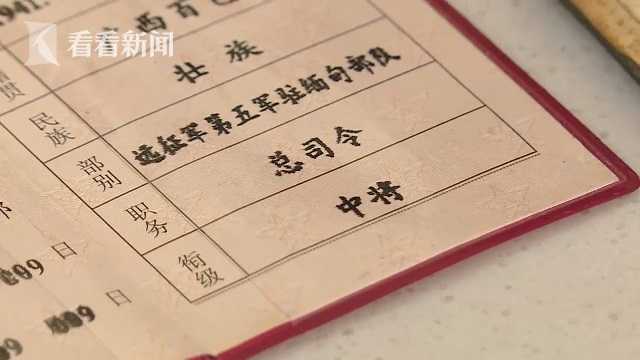 1941.
看看新闻
籍贯 广西百色
民族 壮族
部别 远征军第五军驻缅甸部队
职务 总司令
衔级 中将
09 日
09 日
看看新闻